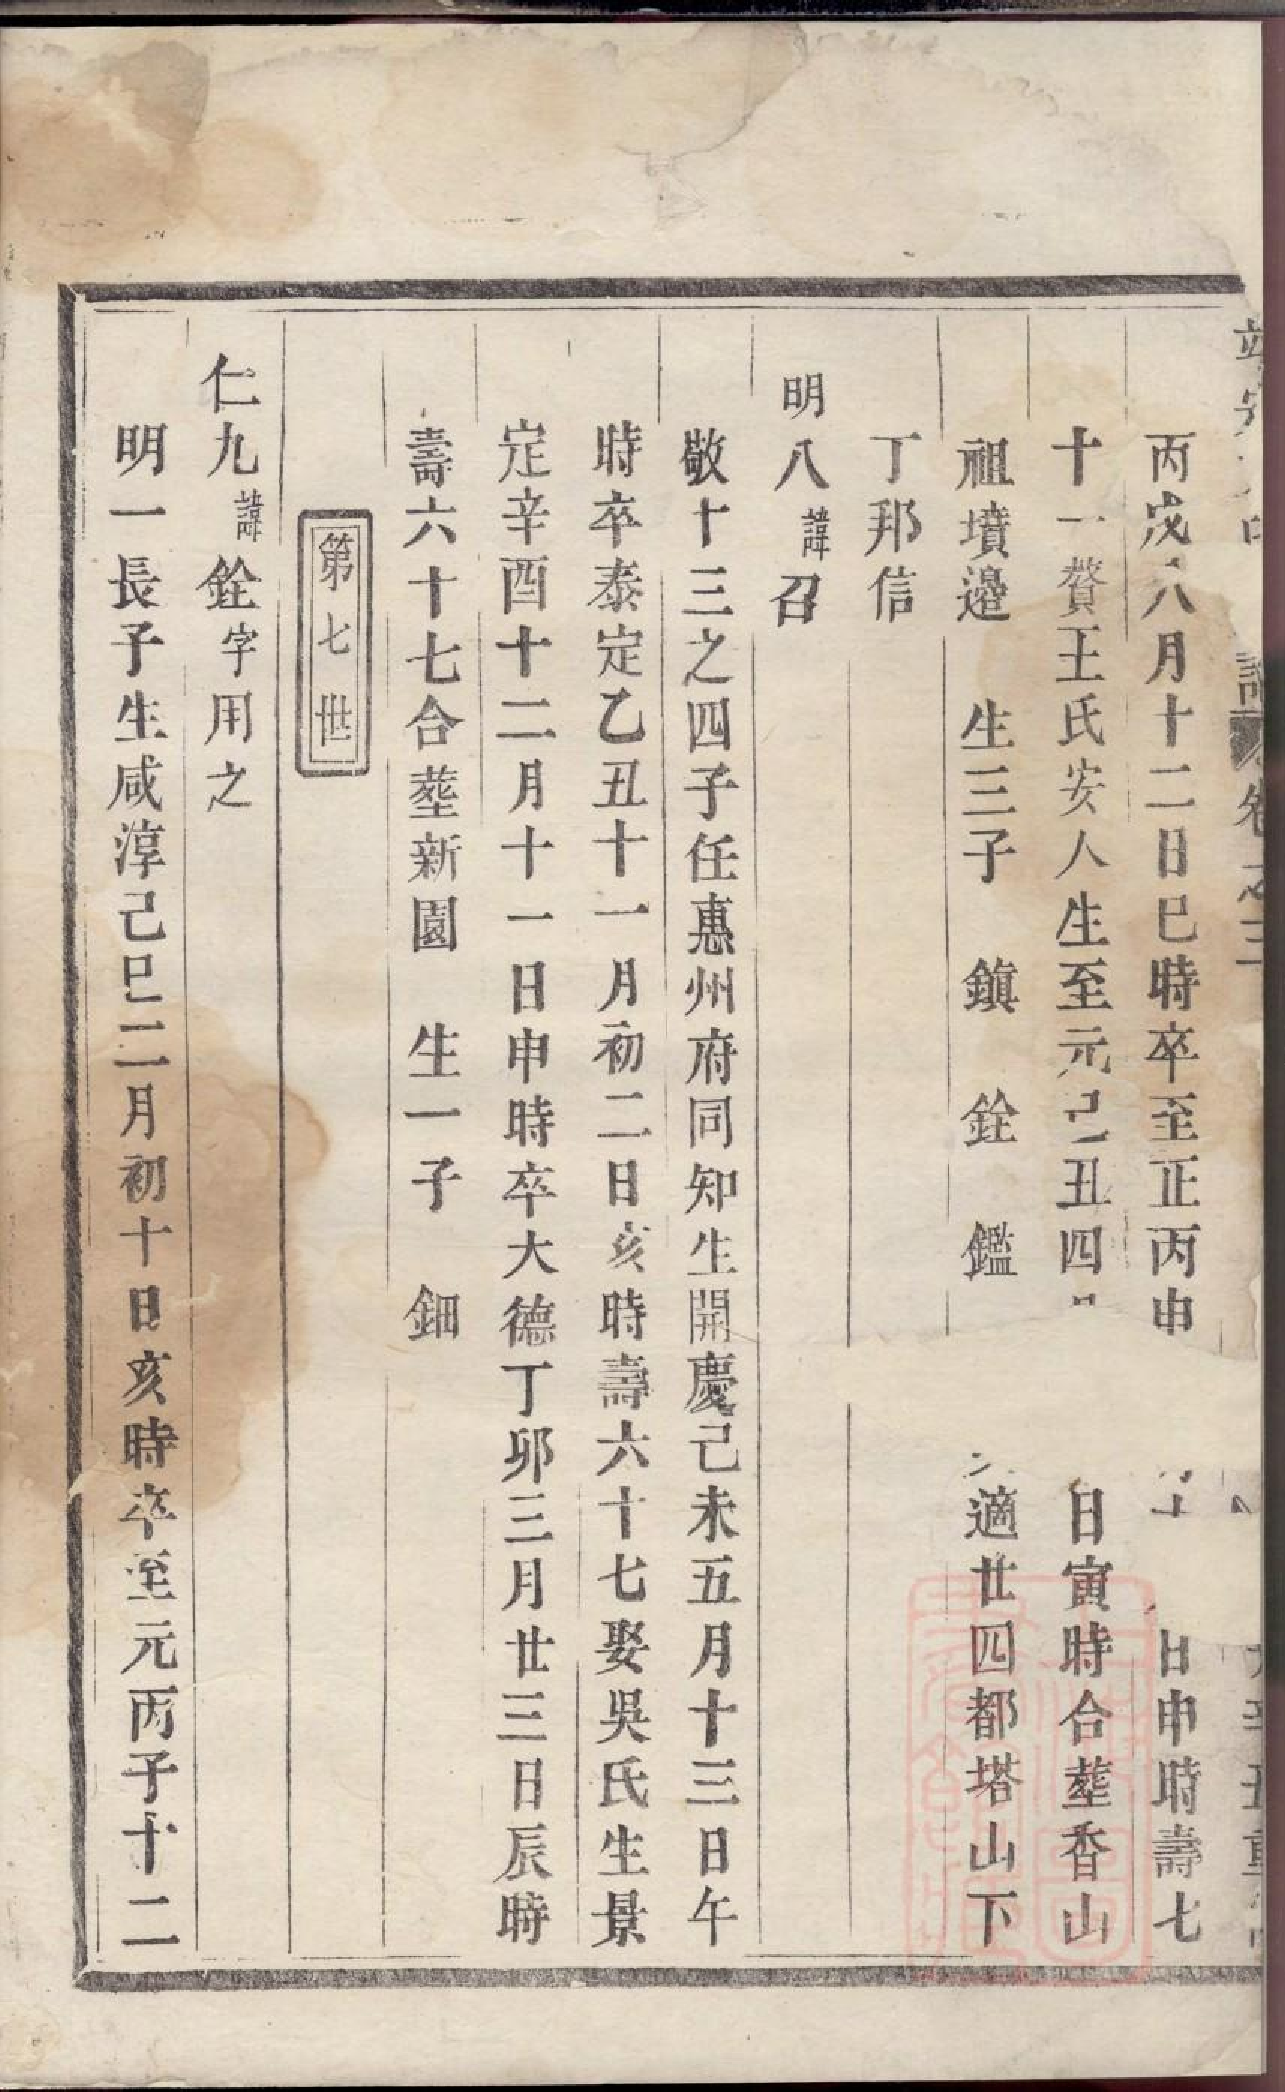 譜 卷之三
丙戌八月十二日巳時卒至正丙申 日申時壽七
十一贅王氏安人生至元己丑四 日寅時合塟香山
祖墳邉 生三子 鎭 銓 鑑 適廿四都塔山下
丁邦信
明八諱召
敬十三之四子任惠州府同知生開慶己未五月十三日午
時卒泰定乙丑十一月初二日亥時壽六十七娶吳氏生景
定辛酉十二月十一日申時卒大德丁卯三月廿三日辰時
壽六十七合塟新園 生一子 鈿
第七世
仁九諱銓字用之
明一長子生咸淳己巳二月初十日亥時卒至元丙子十二